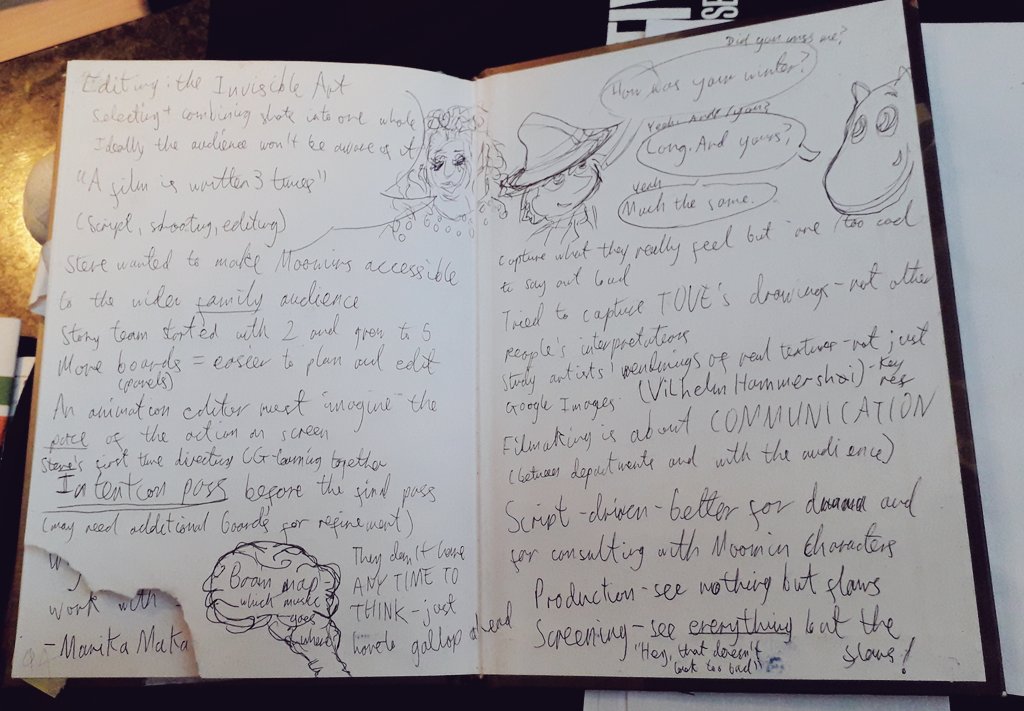 Editing: the Invisible Art
Selecting + combining shots into one whole
Ideally the audience won't be aware of it
"A film is written 3 times"
(Script, shooting, editing)
Steve wanted to make Moomins accessible
to the wider family audience
Story team started with 2 and grew to 5
More boards = easier to plan and edit
(panels)
An animation editor must "imagine" the
pace of the action on screen
Steve's first time directing CG-learning together
Intention pass before the final pass
(may need additional boards for refinement)
work with -
- Marika Maka
Brain map
which music
goes
where
They don't have
ANY TIME TO
THINK - just
have to gallop ahead
Did you miss me?
How was your winter?
Yeah. And yours?
Long. And yours?
Yeah
Much the same.
capture what they really feel but are too cool
to say out loud
Tried to capture TOVE's drawings - not other
people's interpretations
Study artists' renderings of real textures - not just
Google Images (Vilhelm Hammershøi) - key
ref
Filmaking is about COMMUNICATION
(between departments and with the audience)
Script-driven - better for drama and
for consulting with Moomin Characters
Production - see nothing but flaws
Screening - see everything but the
flaws!
"Hey, that doesn't
look too bad"